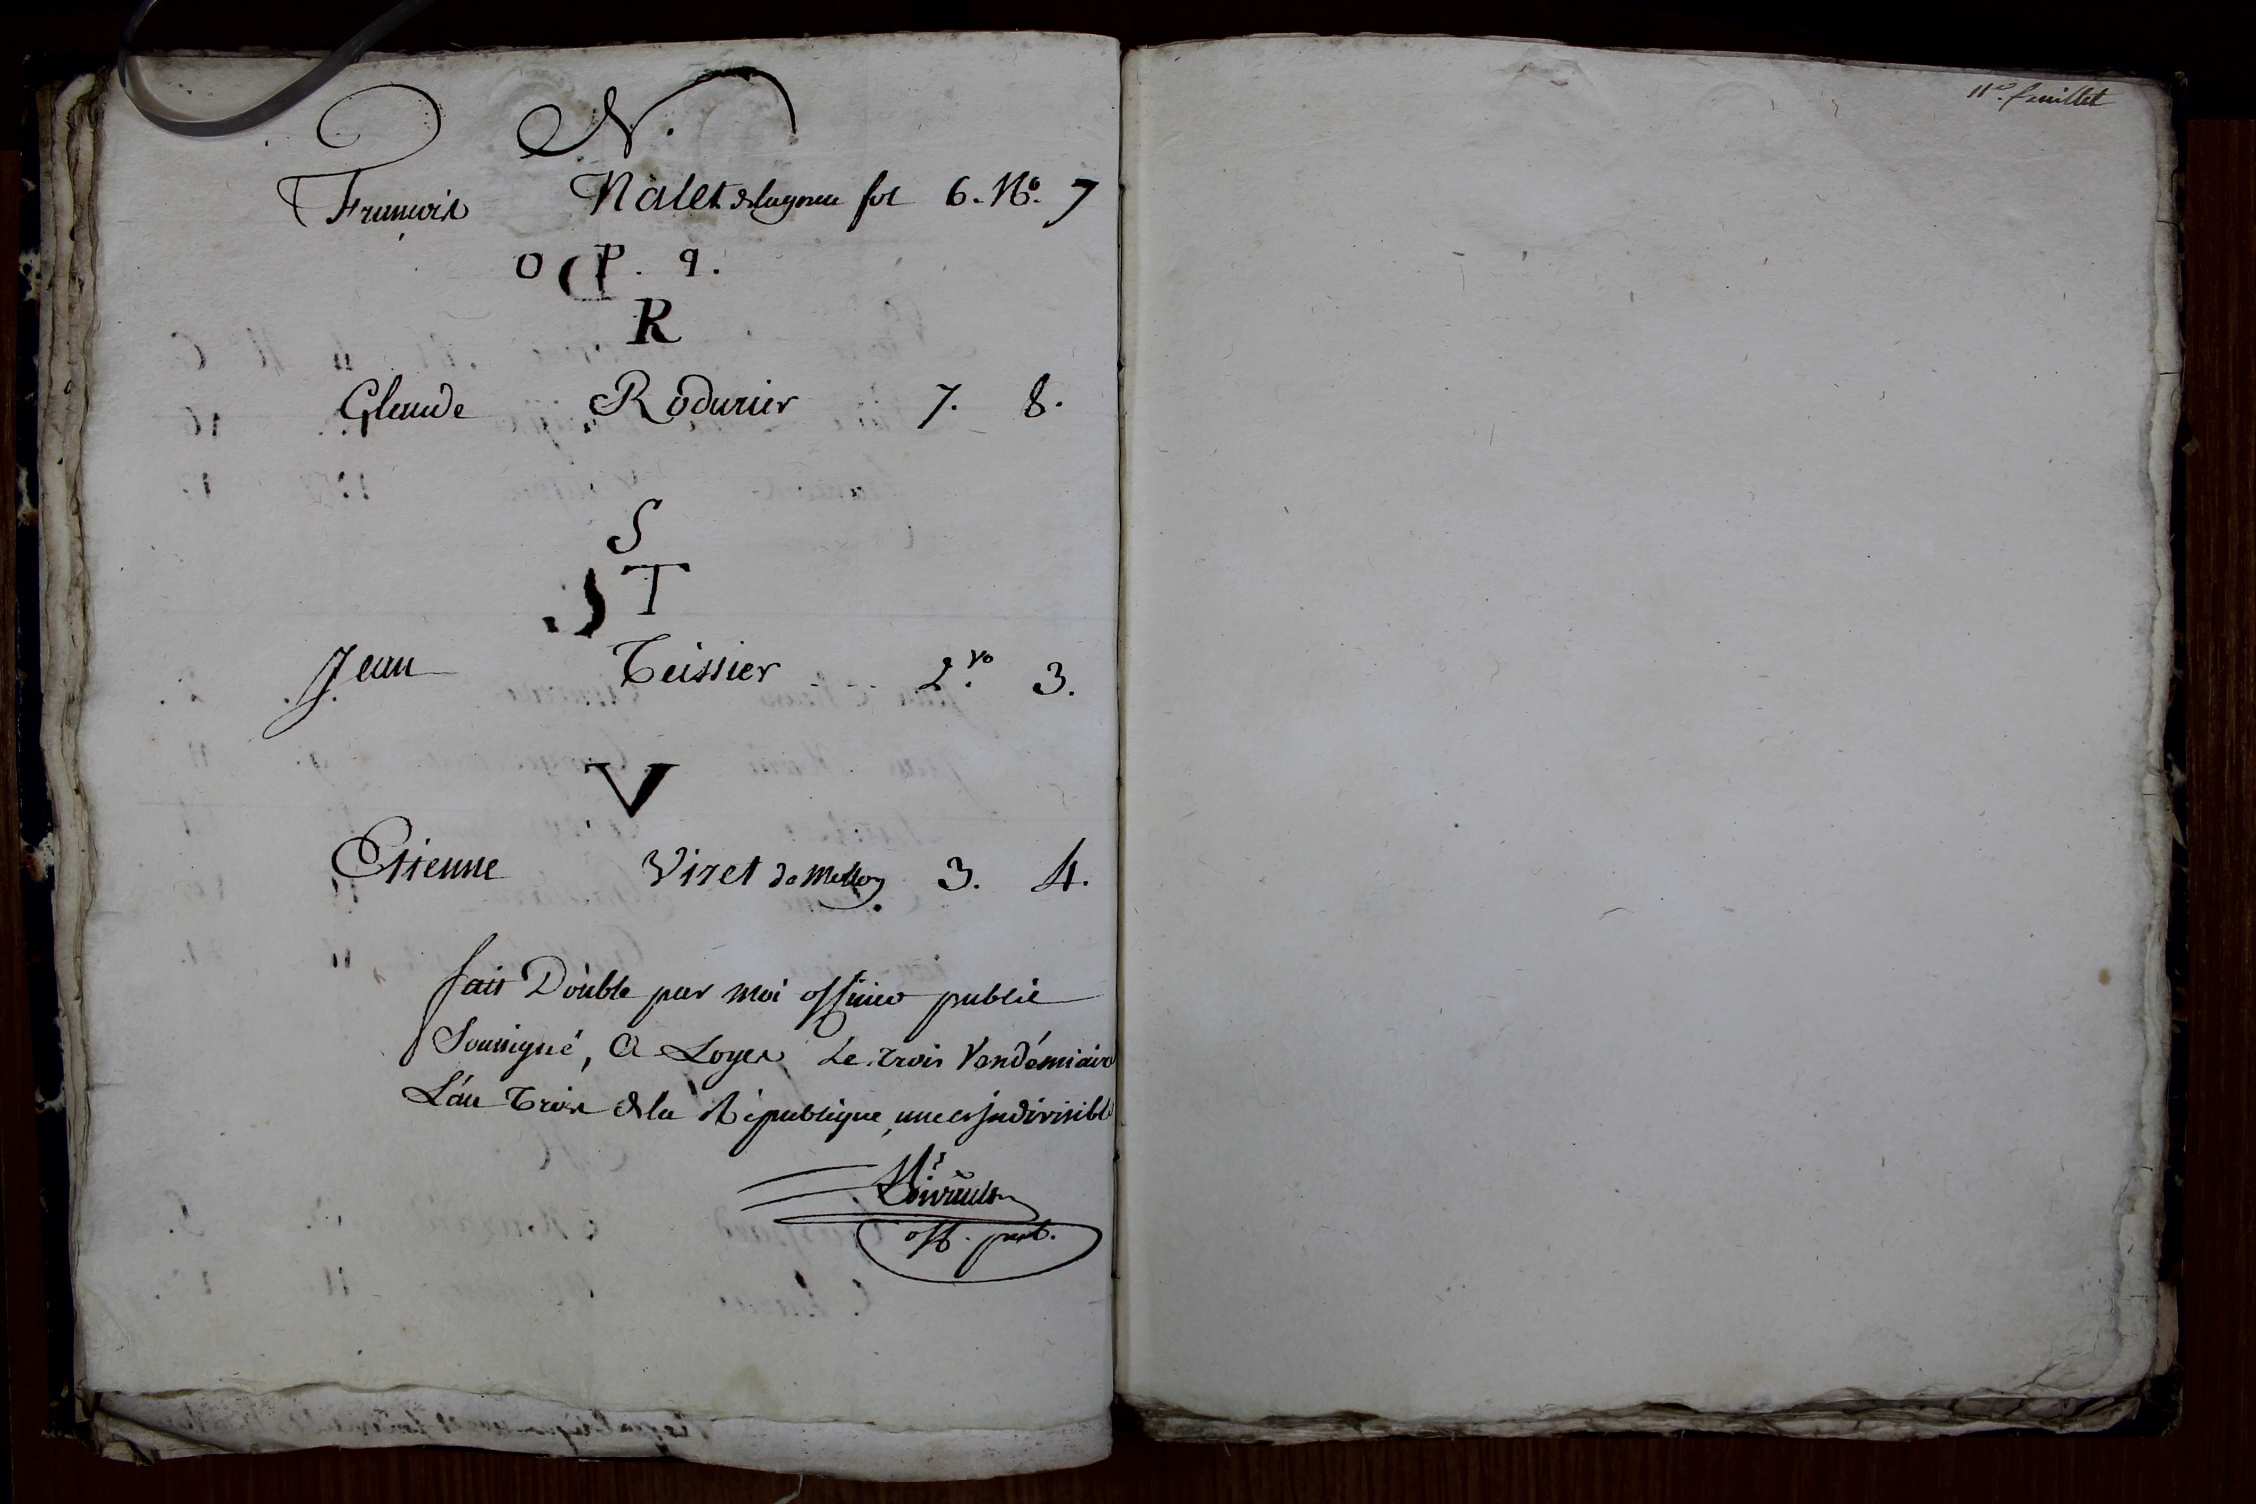 N.
François Nalet de lagnieu fol 6. No. 7
O P. q.
R
Glaude Rodurier 7. 8.
S
T
Jean Teissier 2.vo 3.
V
Etienne Viret de Mollon 3. 4.
fait Double par moi officier public
Soussigné, A Loyes, Le trois Vendémiaire
L'an Trois de la République, une et indivisible
off. pub.
11e. feuillet